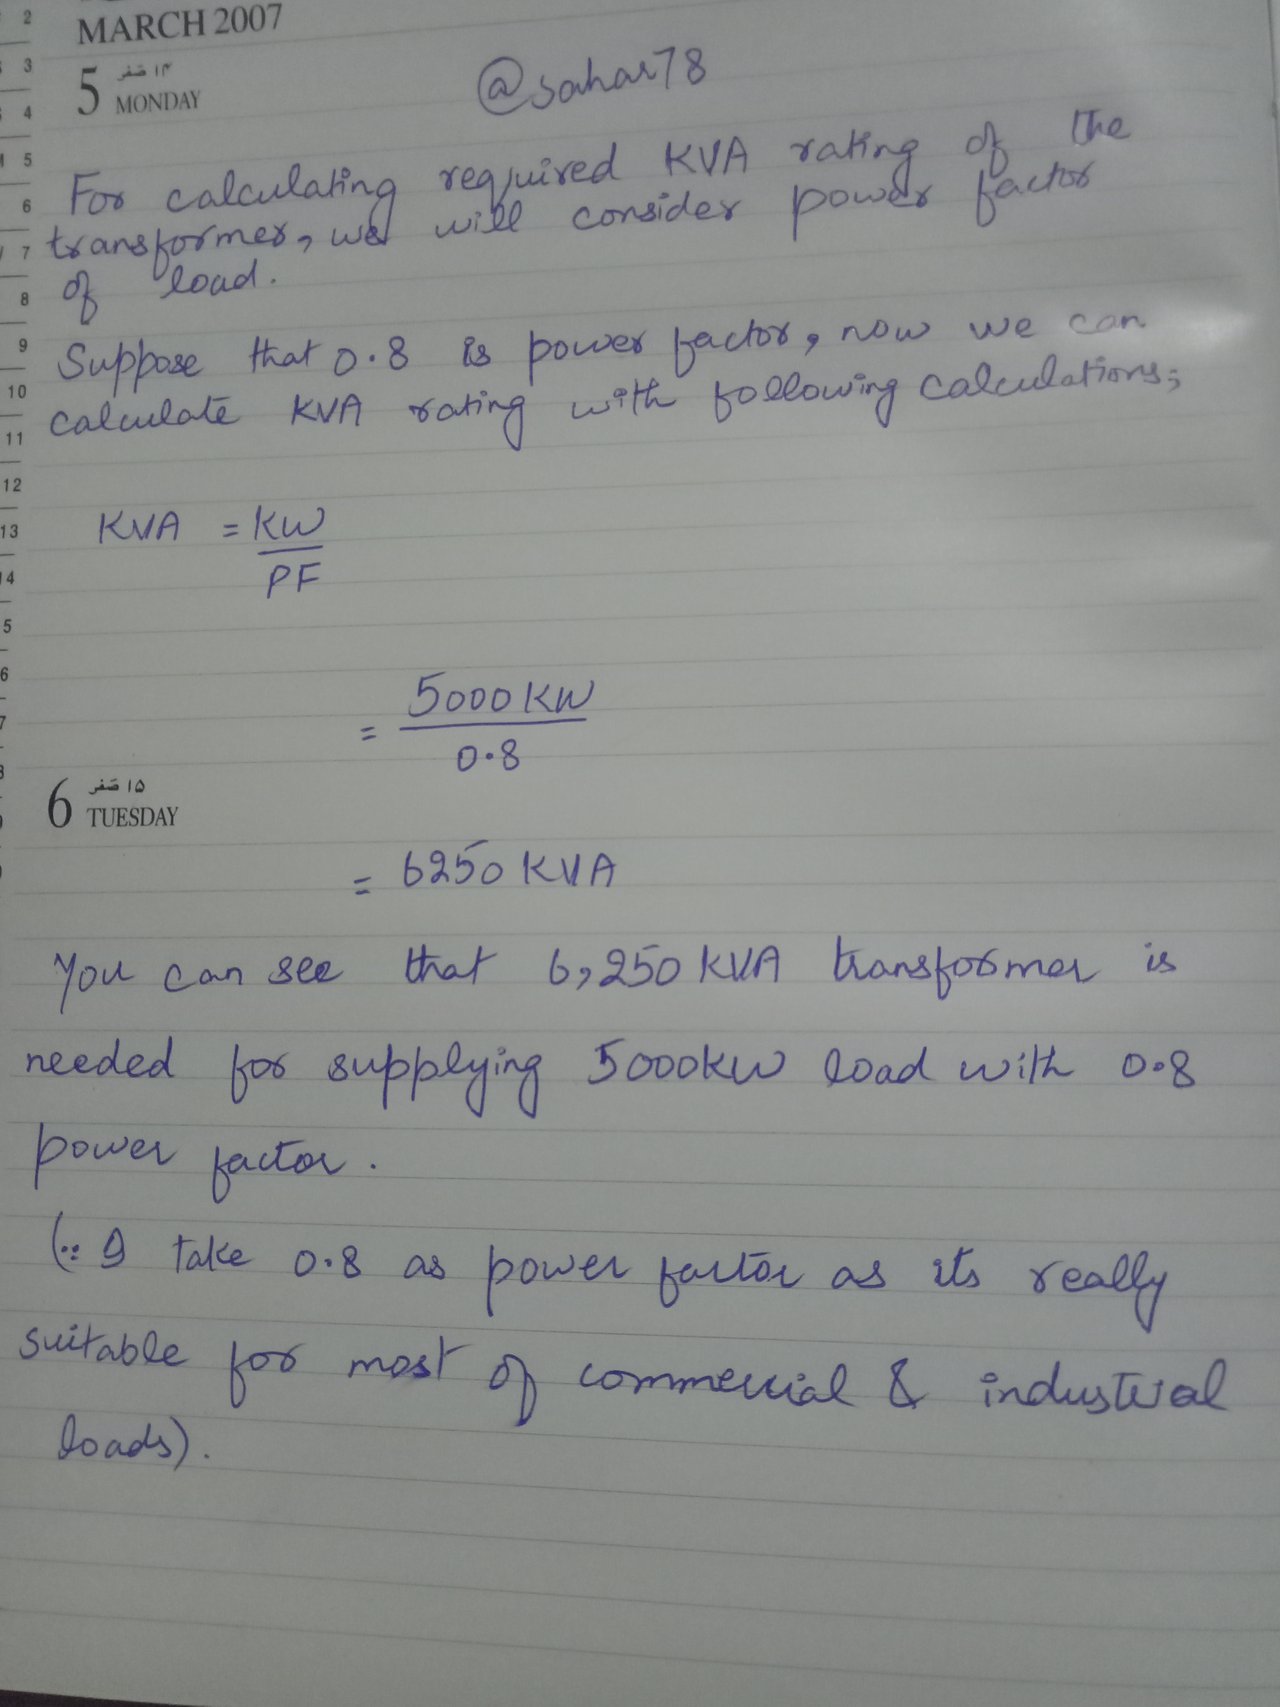 MARCH 2007
5 ۱۴ صَفَر
MONDAY
@sahar78
For calculating required KVA rating of the
transformer, we will consider power factor
of load.
Suppose that 0.8 is power factor, now we can
calculate KVA rating with following calculations;
KVA = KW
PF
= 5000 KW
0.8
6 ۱۵ صَفَر
TUESDAY
= 6250 KVA
You can see that 6,250 KVA transformer is
needed for supplying 5000kw load with 0.8
power factor.
(∵ I take 0.8 as power factor as its really
suitable for most of commercial & industrial
loads).
2
3
4
5
6
7
8
9
10
11
12
13
14
5
6
7